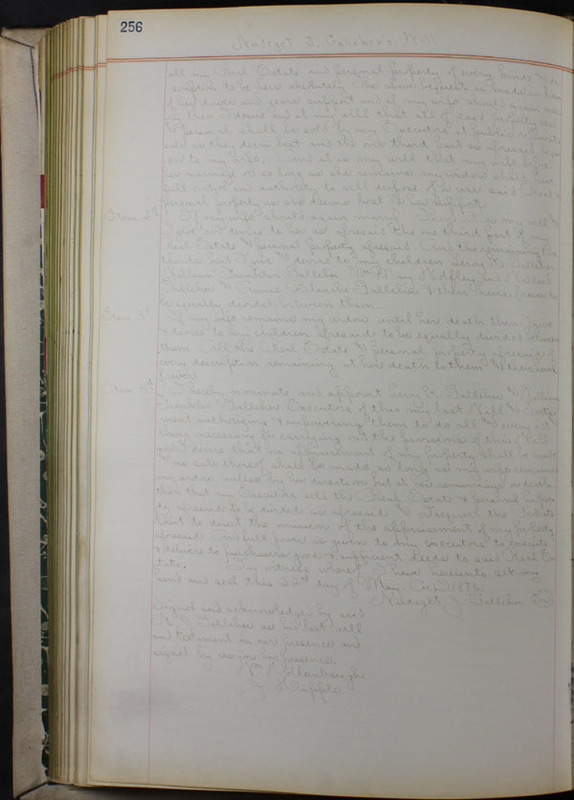 256
J. Gallehers Will
all my Real Estate and personal property of every kind & de
scription to be hers absolutely. The above bequests is made in lieu
of her dower and years support and if my wife should again mar
ry then I desire and it my will that all of said property real
& personal shall be sold by my Executors at public or private
sale as they deem best and the one third part as aforesaid
over to my wife. And it is my will that my wife before
her marriage or so long as she remains my widow shall have
full control and authority to sell dispose of or use said Real &
personal property as she deems best for her support.
Item 2d If my wife should again marry I it is my will &
I give and devise to her as aforesaid the one third part of my
Real Estate & personal property aforesaid. And the remaining two
thirds part I give & devise to my children Leroy K. Galleher
William Franklin Galleher
Galleher & Annie Galleher & their heirs forever to
be equally divided between them.
Item 3d If my wife remains my widow until her death then I give
& devise to my children aforesaid to be equally divided between
them all the Real Estate & personal property aforesaid of
every description remaining at her death to them & their heirs
forever.
Item 4th I hereby nominate and appoint Leroy K. Galleher & William
Franklin Galleher Executors of this my last Will & Testa
ment authorizing & empowering them to do all & every act &
thing necessary to carrying out the provisions of this Will
and I desire that no appraisement of my property shall be made
& no sale thereof shall be made so long as my wife remains
my widow unless by her direction but at her remarriage or death
then that my Executors sell the Real Estate & personal proper
ty aforesaid to be divided as aforesaid & I request the Probate
Court to direct the omission of the appraisement of my property
aforesaid. And full power is given to my executors to execute
& deliver to purchasers good & sufficient deeds to said Real Es
tate. In witness whereof I have hereunto set my
hand and seal this 22nd day of May A.D. 1876.
J. Galleher
Signed and acknowledged by said
J. Galleher as his last will
and testiment in our presence and
signed by us in his presence.